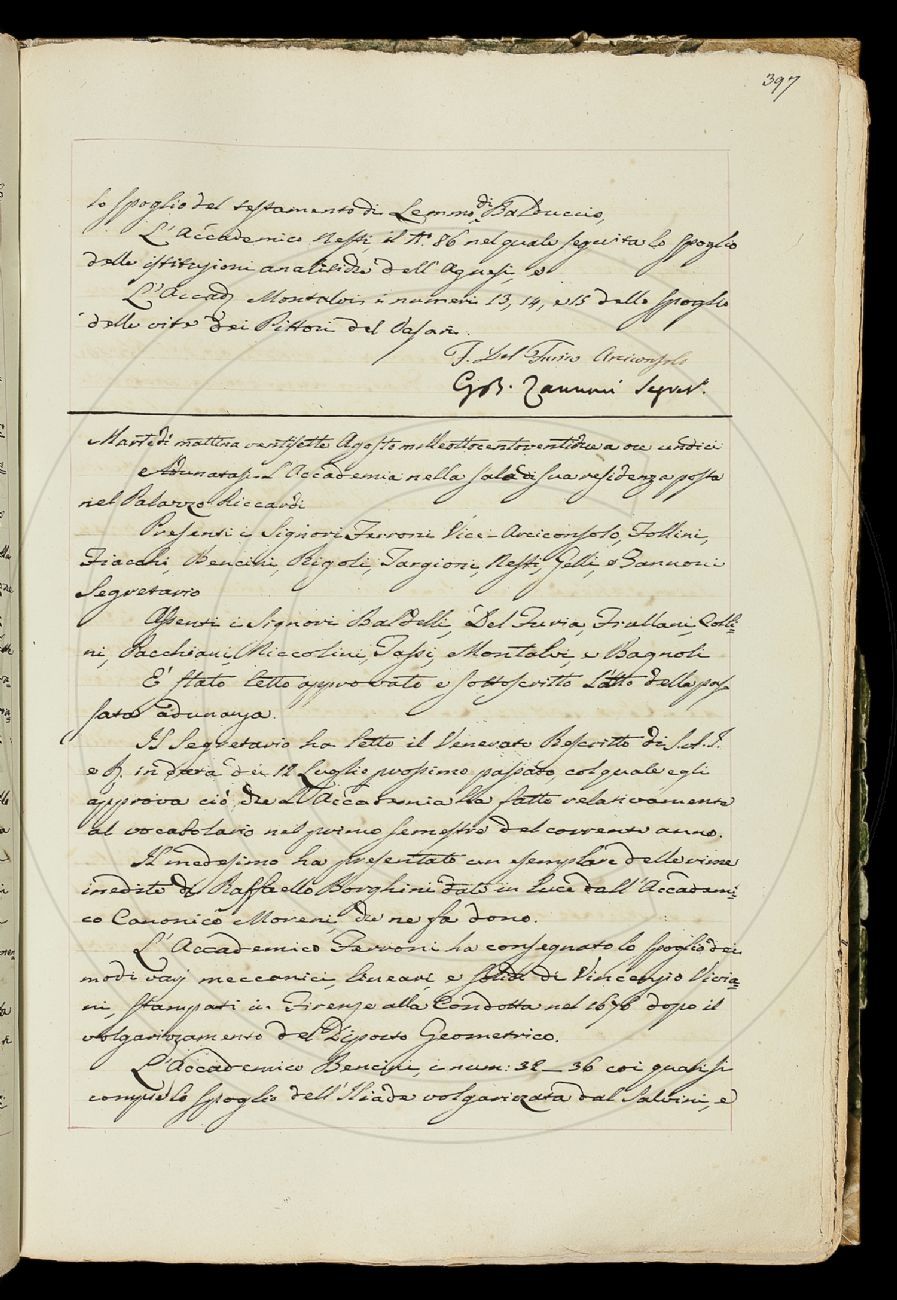 397
lo spoglio del testamento di Lemmo di Balduccio,
L'Accademico Nesti, il N.° 86 nel quale seguita lo spoglio
delle istituzioni analitiche dell'Agnesi, e
L'Accad. Montalvi i numeri 13, 14, e 15 dello spoglio
delle vite dei Pittori del Vasari.
F. Del Furia Arciconsolo
G. B. Zannoni Segret.°
Martedì mattina ventisette Agosto milleottocentoventidue a ore undici
Adunatasi L'Accademia nella sala di sua residenza posta
nel Palazzo Riccardi
Presenti i Signori Ferroni Vice-Arciconsolo, Follini,
Fiacchi, Bencini, Rigoli, Targioni, Nesti, Gelli, e Zannoni
Segretario
Assenti i Signori Baldelli, Del Furia, Frullani, Colli=
ni, Pacchiani, Niccolini, Tassi, Montalvi, e Bagnoli
È stato letto approvato e sottoscritto L'atto della pas=
sata adunanza.
Il Segretario ha letto il Venerato Rescritto di S. A. I.
e R. in data dei 12 Luglio prossimo passato, col quale egli
approva ciò, che L'Accademia ha fatto relativamente
al vocabolario nel primo semestre del corrente anno.
Il medesimo ha presentato un esemplare delle rime
inedite di Raffaello Borghini date in luce dall'Accademi=
co Canonico Moreni, che ne fa dono.
L'Accademico Ferroni ha consegnato lo spoglio dei
modi varj meccanici, lineari, e solidi di Vincenzio Vivia=
ni, stampati in Firenze alla Condotta nel 1676 dopo il
volgarizzamento del Diporto Geometrico.
L'Accademico Bencini, i num: 32_36 coi quali si
compie lo spoglio dell'Iliade volgarizzata dal Salvini, e